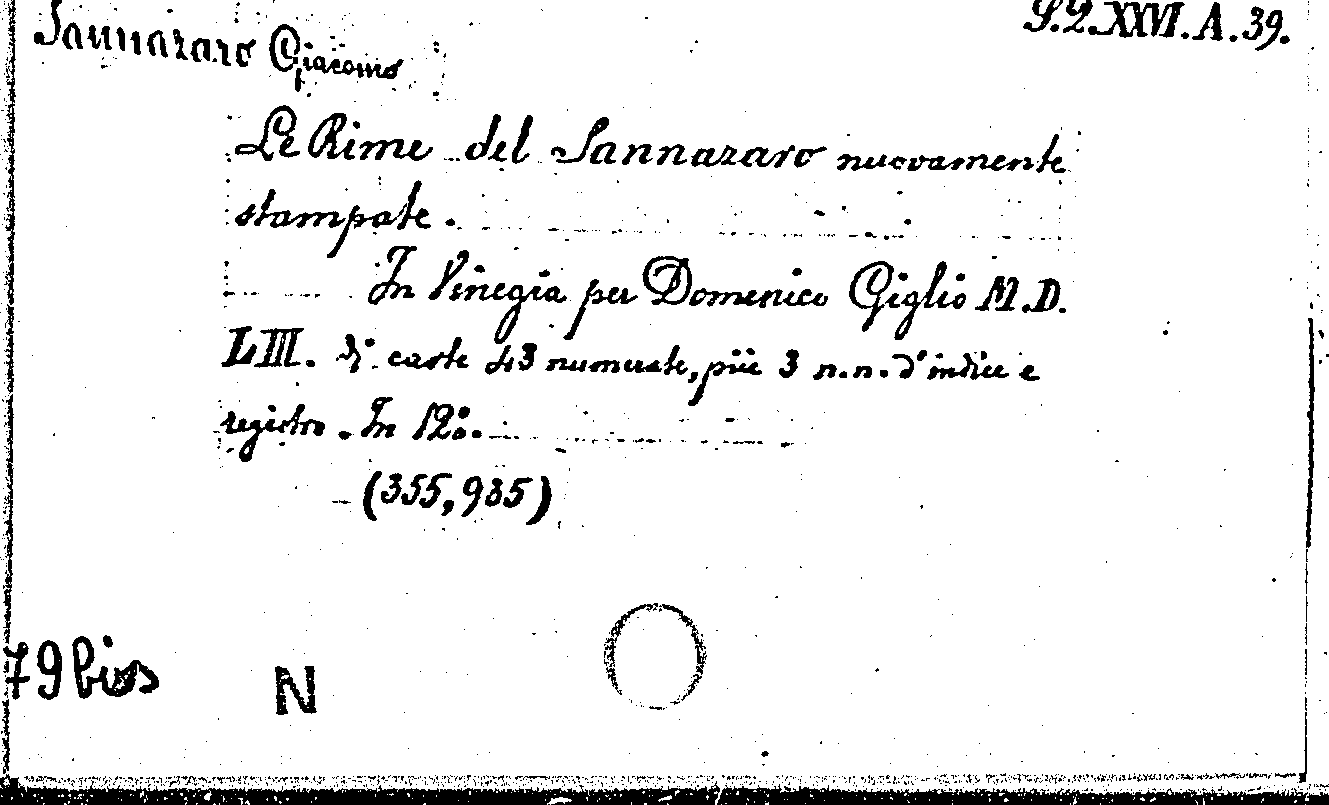 Sannazaro Giacomo
S.Q.XXVI.A.39.
Le Rime del Sannazaro nuovamente
stampate.
In Vinegia per Domenico Giglio M.D.
LIII. di carte 43 numerate, più 3 n.n. d'indice e
registro. In 12º.
(355,935)
79 bis
N